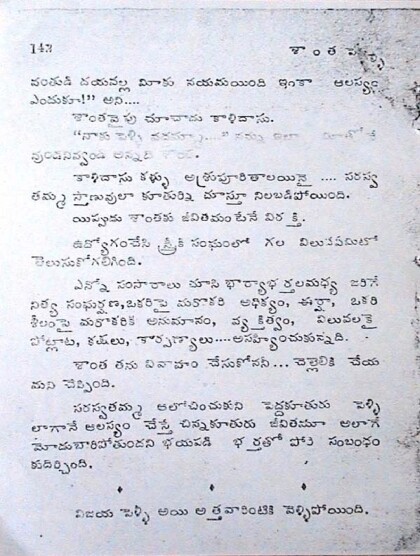 142 శాంత పెళ్ళి
వంతుడి దయవల్ల మీకు నయమయింది ఇంకా ఆలస్యం
ఎందుకూ!" అని....
శాంతవైపు చూచాడు కాళిదాసు.
"నాకు పెళ్ళి వద్దమ్మా...." నన్ను ఇలా
వుండనివ్వండి అన్నది శాంత.
కాళిదాసు కళ్ళు అశ్రుపూరితాలయినై .... సరస్వ
తమ్మ స్తాణువులా కూతుర్ని చూస్తూ నిలబడిపోయింది.
యిప్పుడు శాంతకు జీవితమంటేనే విరక్తి.
ఉద్యోగంచేసి స్త్రీకి సంఘంలో గల విలువేమిటో
తెలుసుకోగలిగింది.
ఎన్నో సంసారాలు చూసి భార్యాభర్తలమధ్య జరిగే
నిత్య సంఘర్షణ,ఒకరిపై మరొకరి అధిక్యం, ఈర్ష్యా, ఒకరి
శీలంపై మరొకరికి అనుమానం, వ్యక్తిత్వం, విలువలకై
పోట్లాట, కక్షలు, కార్పణ్యాలు....అసహ్యించుకున్నది.
శాంత తను వివాహం చేసుకోనని... చెల్లెలికి చేయ
మని చెప్పింది.
సరస్వతమ్మ ఆలోచించుకుని పెద్దకూతురు పెళ్ళి
లాగానే ఆలస్యం చేస్తే చిన్నకూతురు జీవితమూ అలాగే
మోడుబారిపోతుందని భయపడి భర్తతో పోరి సంబంధం
కుదిర్చింది.
విజయ పెళ్ళి అయి అత్తవారింటికి వెళ్ళిపోయింది.